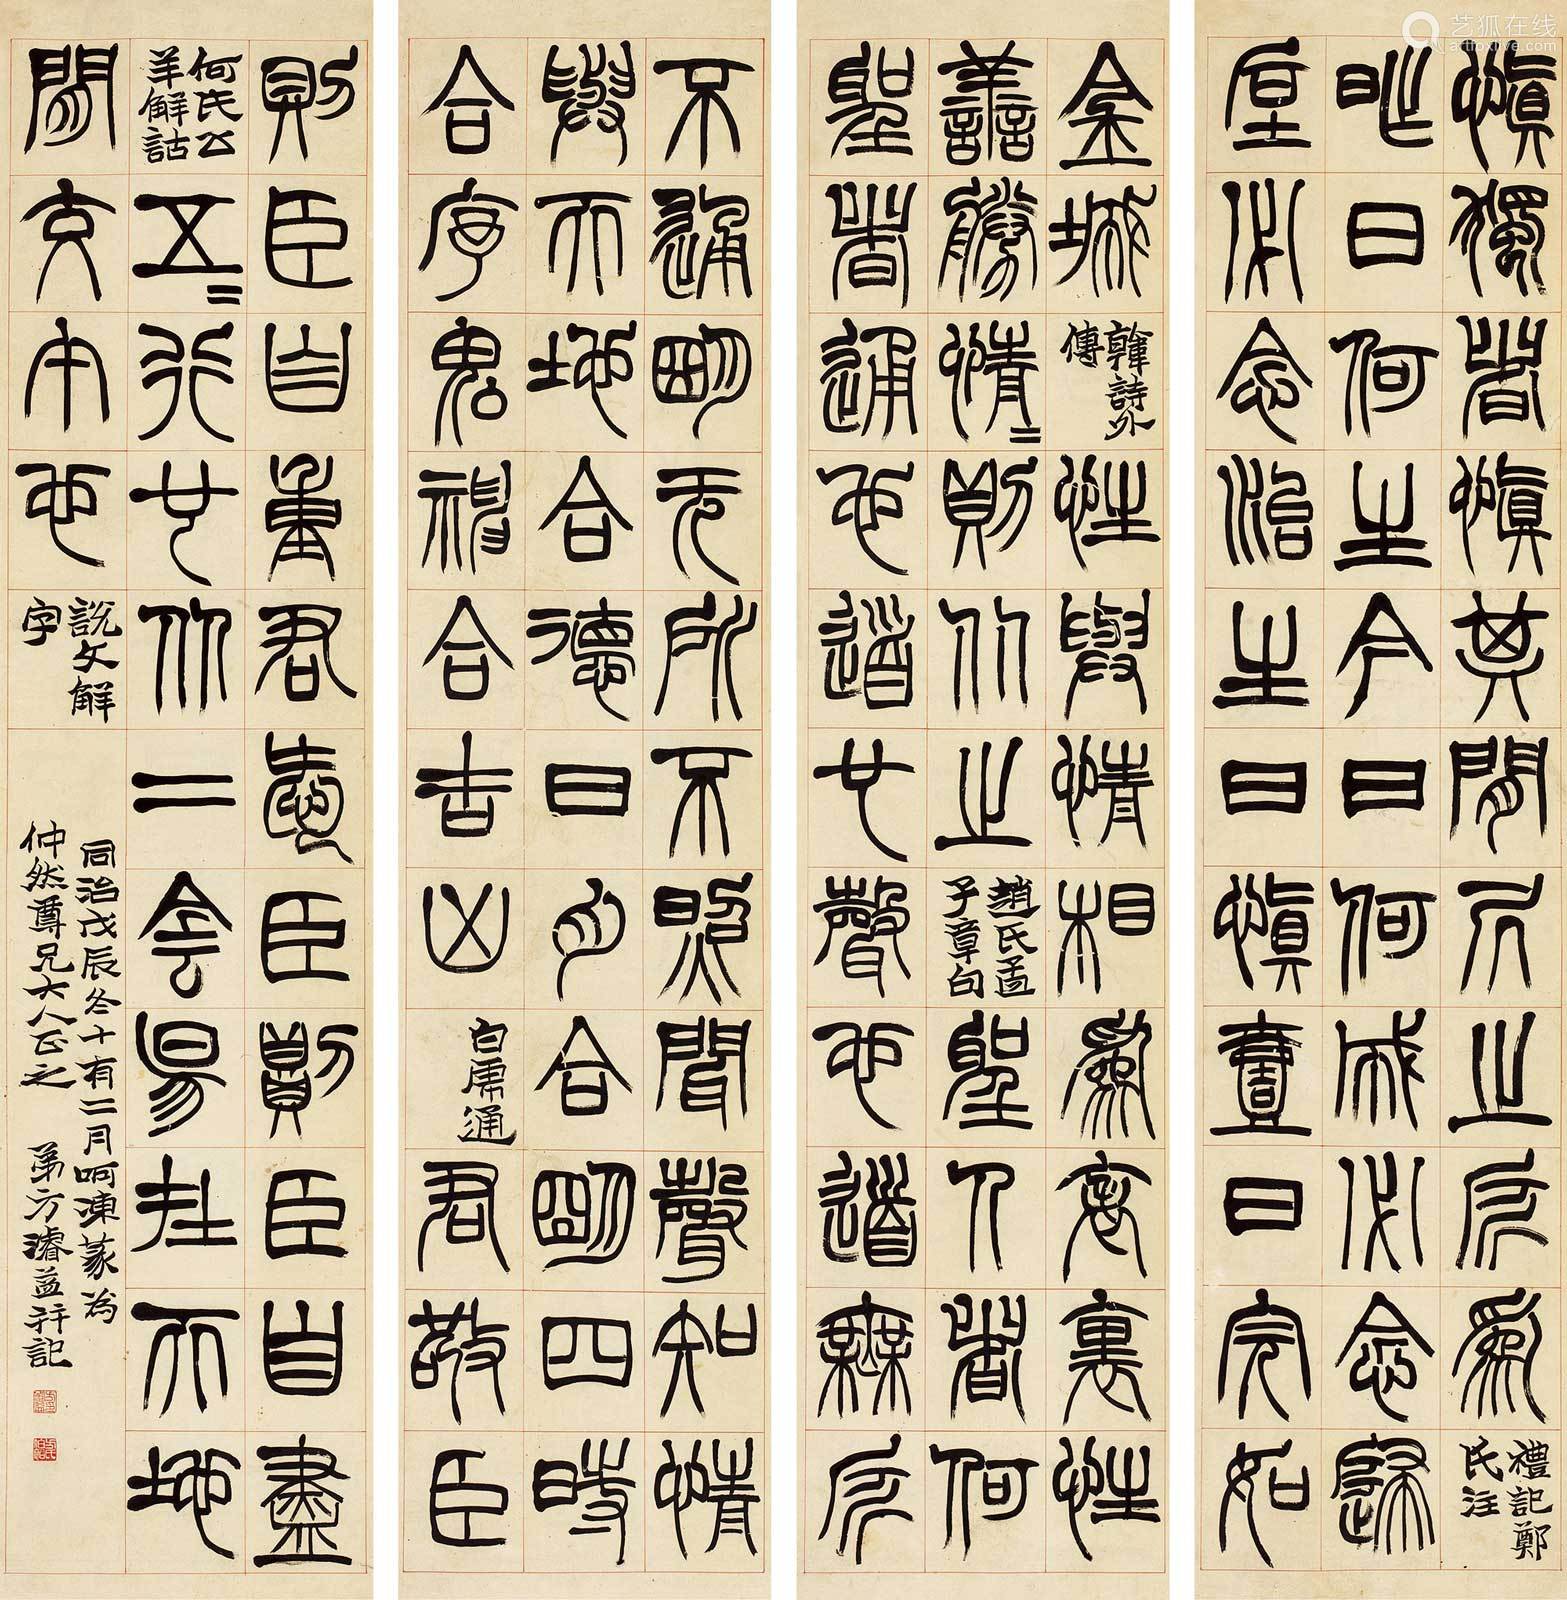 慎獨者慎其閒凥之所爲禮記鄭氏注
昨日何生今日何成必念歸
厚必念治生日慎壹日完如
金城韓詩外傳性與情相爲表裏性
善勝情=則从之趙氏孟子章句聖人者何
聖者通也道也聲也道無所
不通明无所不照聞聲知情
與天地合德日月合明四時
合序鬼神合吉凶白虎通君敬臣
則臣自重君愛臣則臣自盡
何氏公羊解詁五=行也从二侌昜在天地
閒交午也說文解字
同治戊辰冬十有二月呵凍篆爲
仲然尊兄大人正之 弟方濬益并記
艺狐在线
artfoxlive.com